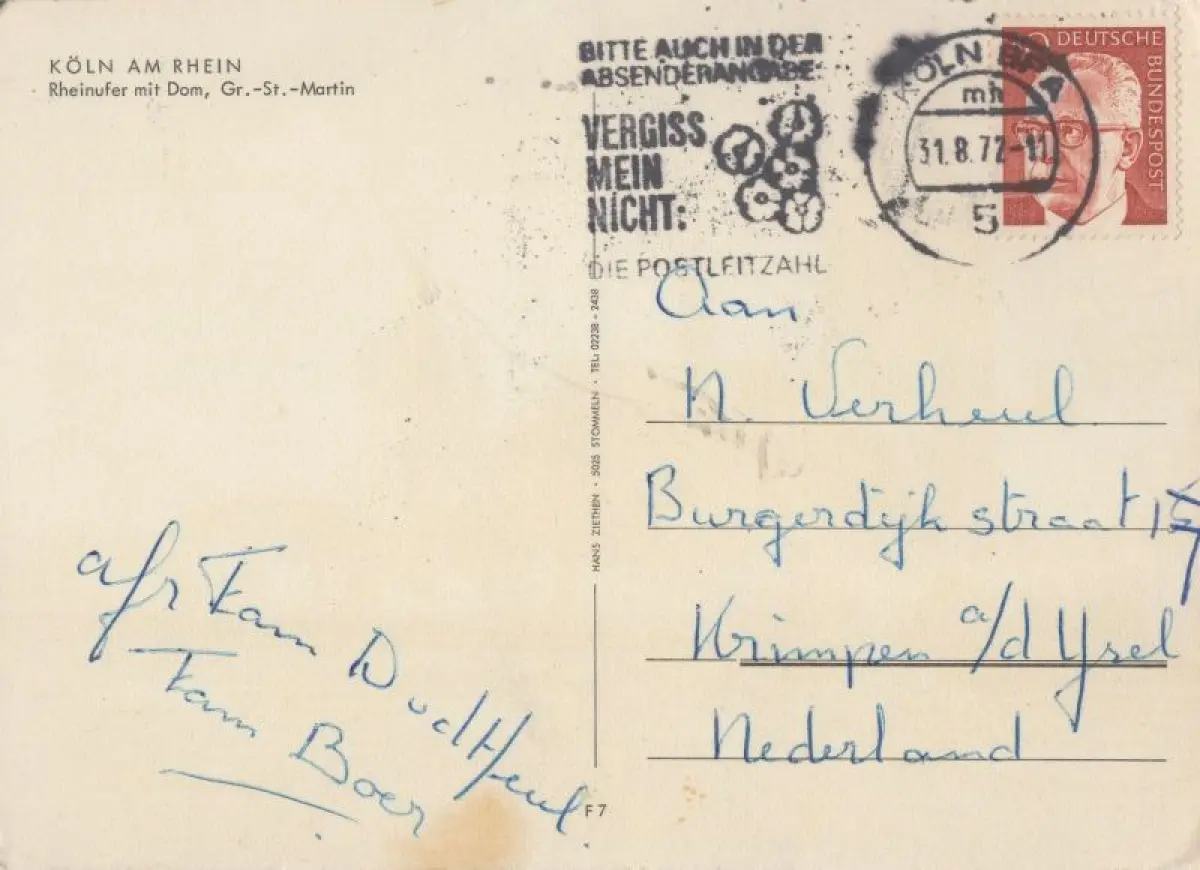 KÖLN AM RHEIN
Rheinufer mit Dom, Gr.-St.-Martin
BITTE AUCH IN DER
ABSENDERANGABE:
VERGISS
MEIN
NICHT:
DIE POSTLEITZAHL
KÖLN BPA
mh
31.8.72-11
5
DEUTSCHE
BUNDESPOST
HANS ZIETHEN · 5025 STOMMELN · TEL: 02238 - 2438
Aan
N. Verheul
Burgerdijk straat
Krimpen a/d Ysel
Nederland
afs Fam D v d Heul
Fam Boer
F 7